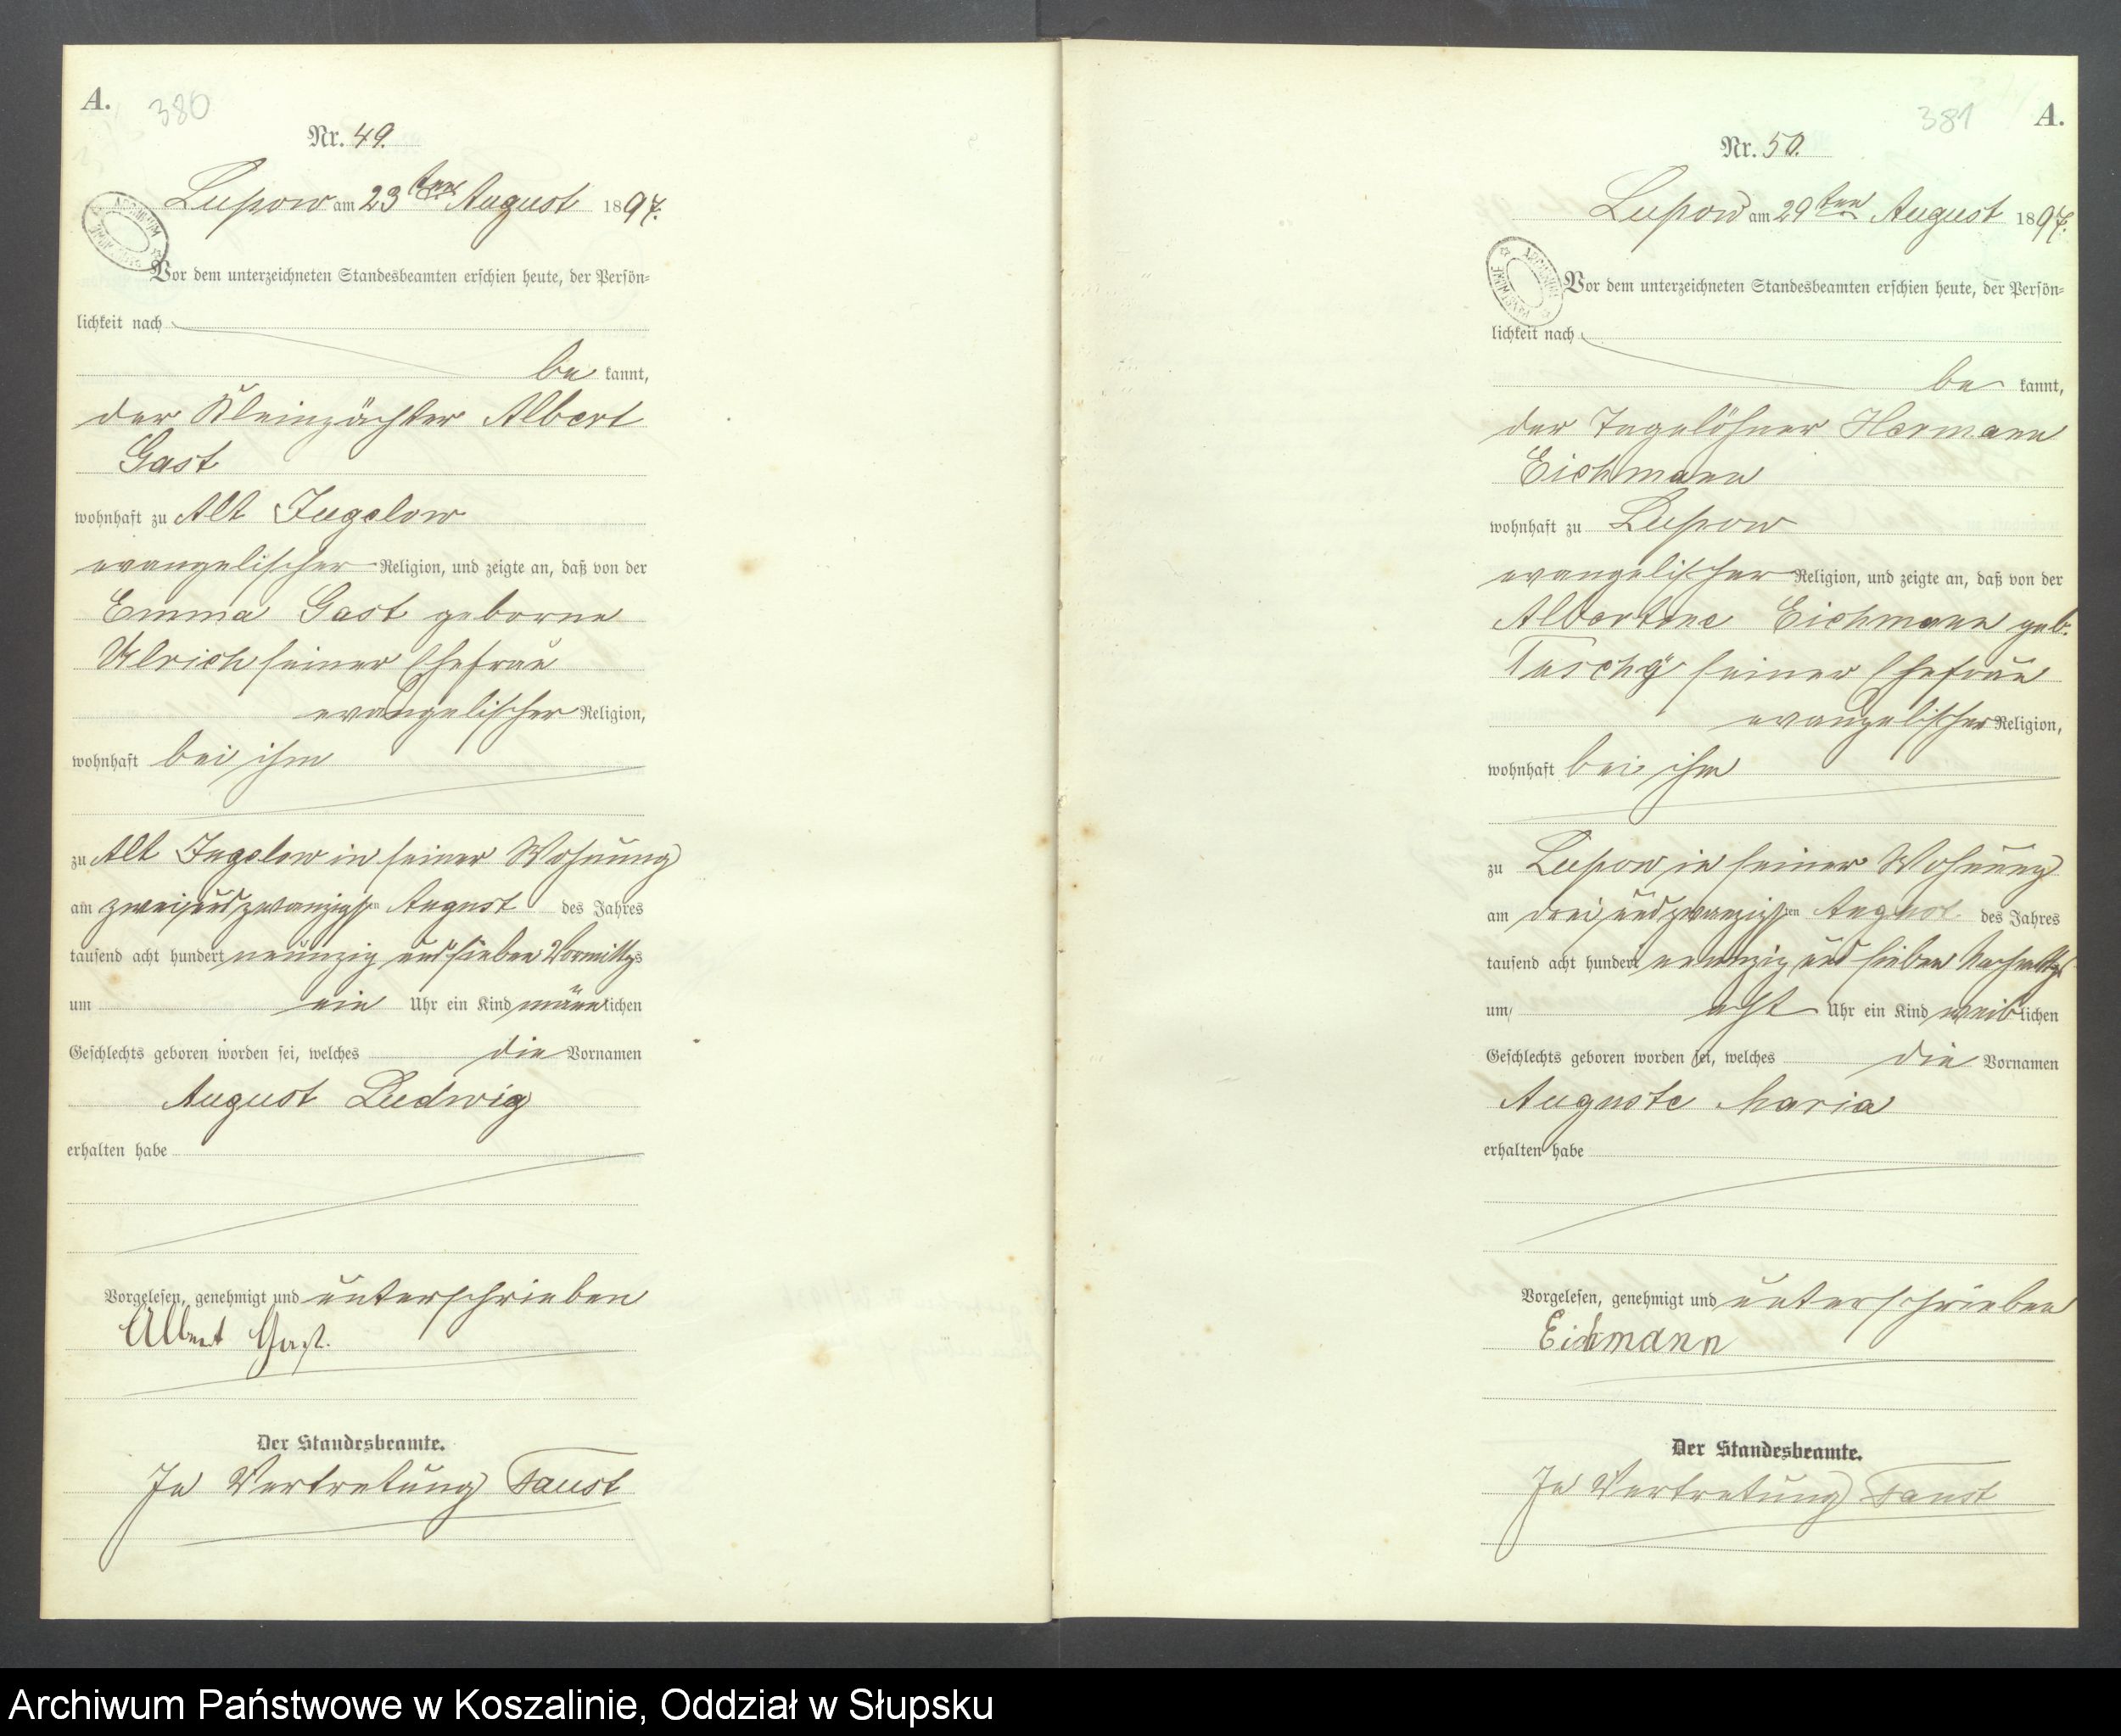 A. 380
Nr. 49.
Lupow am 23ten August 1897.
Vor dem unterzeichneten Standesbeamten erschien heute, der Persön=
lichkeit nach
be kannt,
der Kleinpächter Albert
Gast
wohnhaft zu Alt Jugelow
evangelischer Religion, und zeigte an, daß von der
Emma Gast geborne
Ulrich seiner Ehefrau
evangelischer Religion,
wohnhaft bei ihm
zu Alt Jugelow in seiner Wohnung
am zweiundzwanzigsten August des Jahres
tausend acht hundert neunzig und sieben Vormittgs
um ein Uhr ein Kind männlichen
Geschlechts geboren worden sei, welches die Vornamen
August Ludwig
erhalten habe
Vorgelesen, genehmigt und unterschrieben
Albert Gast.
Der Standesbeamte.
In Vertretung Faust
381 A.
Nr. 50.
Lupow am 29ten August 1897.
Vor dem unterzeichneten Standesbeamten erschien heute, der Persön=
lichkeit nach
be kannt,
der Tagelöhner Hermann
Eichmann
wohnhaft zu Lupow
evangelischer Religion, und zeigte an, daß von der
Albertine Eichmann geb.
seiner Ehefrau
evangelischer Religion,
wohnhaft bei ihm
zu Lupow in seiner Wohnung
am dreiundzwanzigsten August des Jahres
tausend acht hundert neunzig und sieben Nachmittgs
um acht Uhr ein Kind weiblichen
Geschlechts geboren worden sei, welches die Vornamen
Auguste Maria
erhalten habe
Vorgelesen, genehmigt und unterschrieben
Eichmann
Der Standesbeamte.
In Vertretung Faust
Archiwum Państwowe w Koszalinie, Oddział w Słupsku